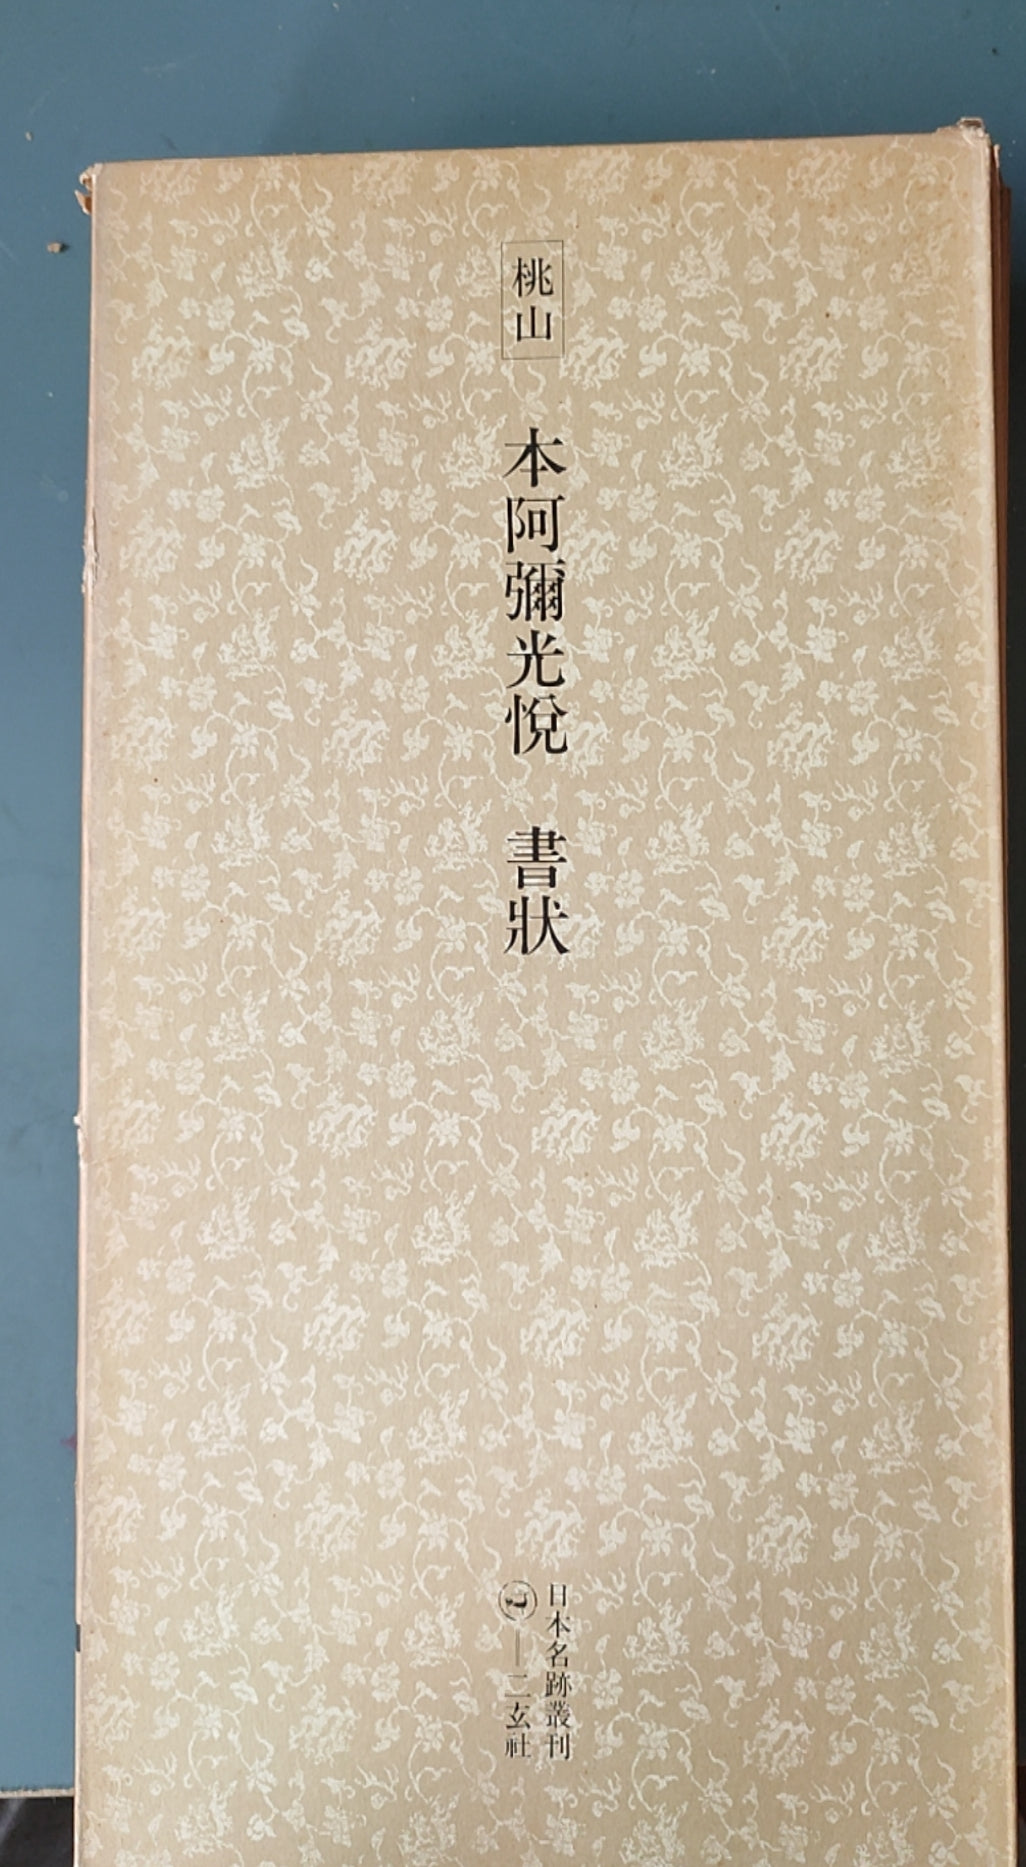 桃山
本阿彌光悅 書狀
日本名跡叢刊
二玄社